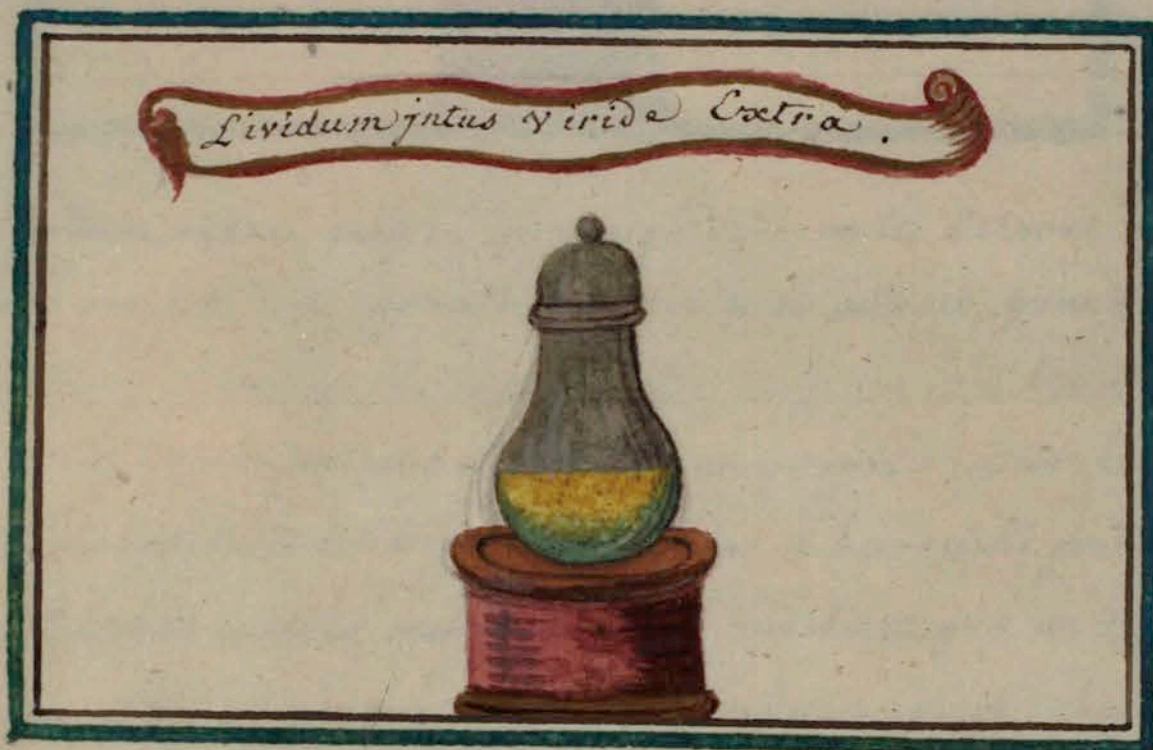 Lividum jntus Viride Extra .